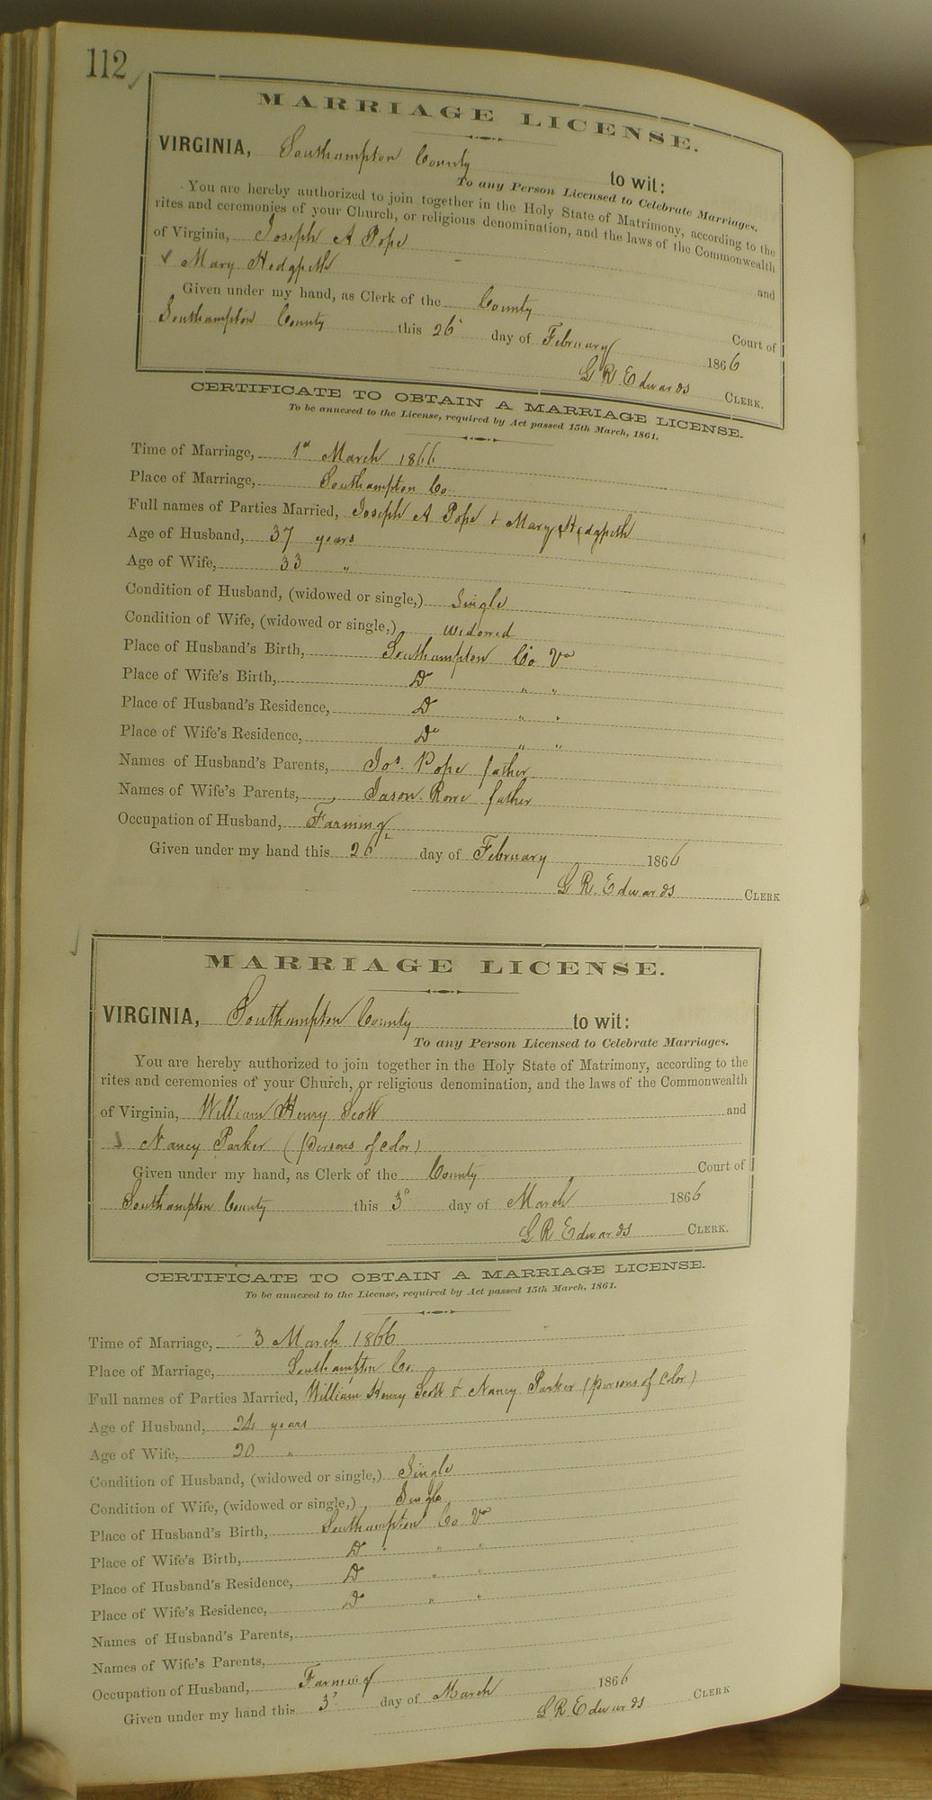 112
MARRIAGE LICENSE.
VIRGINIA, Southampton County to wit:
To any Person Licensed to Celebrate Marriages.
You are hereby authorized to join together in the Holy State of Matrimony, according to the
rites and ceremonies of your Church, or religious denomination, and the laws of the Commonwealth
of Virginia, Joseph A Pope and
Mary Hedgpeth
Given under my hand, as Clerk of the County Court of
Southampton County this 26 day of February 1866
G R Edwards CLERK.
CERTIFICATE TO OBTAIN A MARRIAGE LICENSE.
To be annexed to the License, required by Act passed 15th March, 1861.
Time of Marriage, 1st March 1866
Place of Marriage, Southampton Co
Full names of Parties Married, Joseph A Pope & Mary Hedgpeth
Age of Husband, 37 years
Age of Wife, 33 "
Condition of Husband, (widowed or single,) Single
Condition of Wife, (widowed or single,) widowed
Place of Husband's Birth, Southampton Co Va
Place of Wife's Birth, Do " "
Place of Husband's Residence, Do " "
Place of Wife's Residence, Do " "
Names of Husband's Parents, Jos. Pope father
Names of Wife's Parents, Jason Rowe father
Occupation of Husband, Farming
Given under my hand this 26 day of February 1866
G R. Edwards CLERK
MARRIAGE LICENSE.
VIRGINIA, Southampton County to wit:
To any Person Licensed to Celebrate Marriages.
You are hereby authorized to join together in the Holy State of Matrimony, according to the
rites and ceremonies of your Church, or religious denomination, and the laws of the Commonwealth
of Virginia, William Henry Scott and
Nancy Parker (persons of color)
Given under my hand, as Clerk of the County Court of
Southampton County this 3d day of March 1866
G R Edwards CLERK.
CERTIFICATE TO OBTAIN A MARRIAGE LICENSE.
To be annexed to the License, required by Act passed 15th March, 1861.
Time of Marriage, 3 March 1866
Place of Marriage, Southampton Co.
Full names of Parties Married, William Henry Scott & Nancy Parker (persons of color)
Age of Husband, 24 years
Age of Wife, 20 "
Condition of Husband, (widowed or single,) Single
Condition of Wife, (widowed or single,) Single
Place of Husband's Birth, Southampton Co Va
Place of Wife's Birth, Do " "
Place of Husband's Residence, Do " "
Place of Wife's Residence, Do " "
Names of Husband's Parents,
Names of Wife's Parents,
Occupation of Husband, Farming
Given under my hand this 3d day of March 1866
G R Edwards CLERK